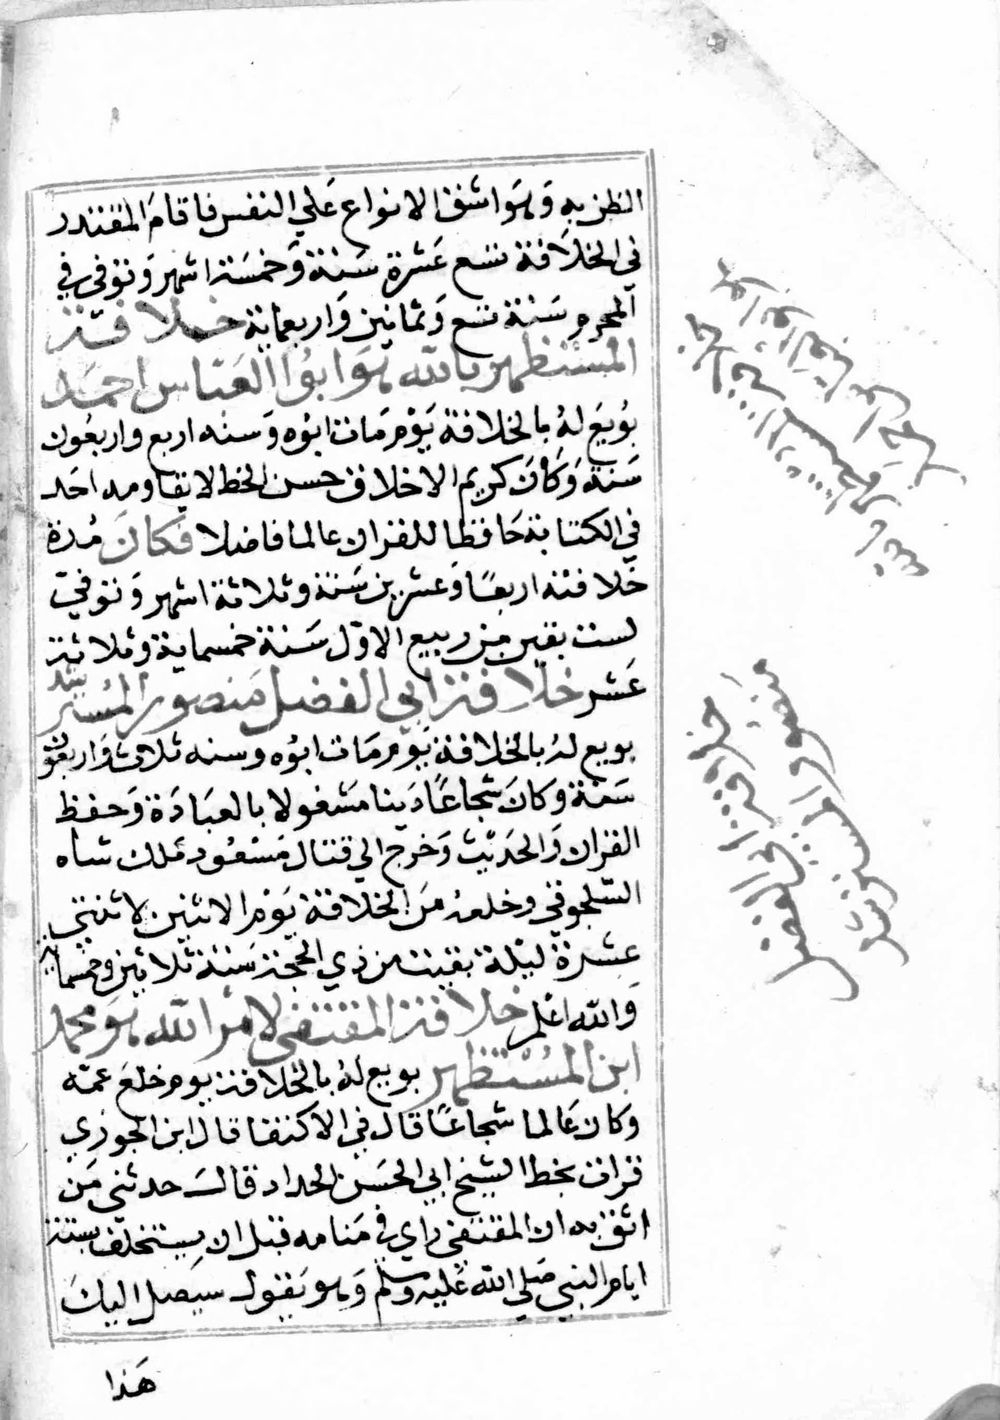 الظن به وهو اشق الانواع علي النفس فاقام المقتدر
في الخلافة تسع عشرة سنة وخمسة اشهر وتوفي في
المحرم سنة تسع وثمانين واربعماية خلافة
المستظهر بالله هو ابو العباس احمد
بويع له بالخلافة يوم مات ابوه وسنه اربع واربعون
سنة وكان كريم الاخلاق حسن الخط لا يقاومه احد
في الكتابة حافظا للقران عالما فاضلا فكان مدة
خلافته اربعا وعشرين سنة وثلاثة اشهر وتوفي
لست بقين من ربيع الاول سنة خمسماية وثلاثة
عشر خلافة ابي الفضل منصور المسترشد
بويع له بالخلافة يوم مات ابوه وسنه ثلاث واربعون
سنة وكان شجاعا دينا مشغولا بالعبادة وحفظ
القران والحديث وخرج الي قتال مسعود ملك شاه
السلجوقي وخلعه من الخلافة يوم الاثنين لاثنتي
عشرة ليلة بقيت من ذي الحجة سنة ثلاثين وخمسماية
والله اعلم خلافة المقتفي لامر الله هو محمد
ابن المستظهر بويع له بالخلافة يوم خلع عمه
وكان عالما شجاعا قال في الاكتفا قال ابن الجوزي
قرات بخط الشيخ ابي الحسن الحداد قال حدثني من
اثق به ان المقتفي راي في منامه قبل ان يستخلف بستة
ايام النبي صلي الله عليه وسلم وهو يقول سيصل اليك
هذا
خلافة ابي الفضل
منصور المسترشد